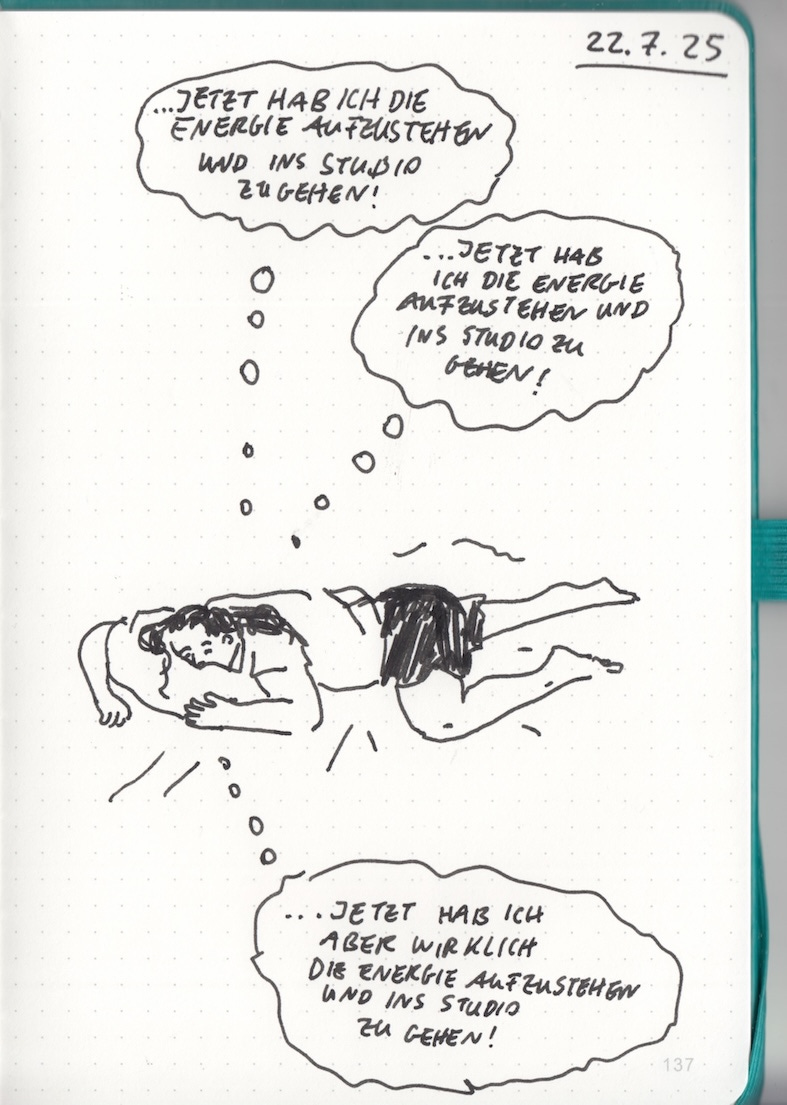 22.7.25
...JETZT HAB ICH DIE
ENERGIE AUFZUSTEHEN
UND INS STUDIO
ZU GEHEN!
...JETZT HAB
ICH DIE ENERGIE
AUFZUSTEHEN UND
INS STUDIO ZU
GEHEN!
...JETZT HAB ICH
ABER WIRKLICH
DIE ENERGIE AUFZUSTEHEN
UND INS STUDIO
ZU GEHEN!
137